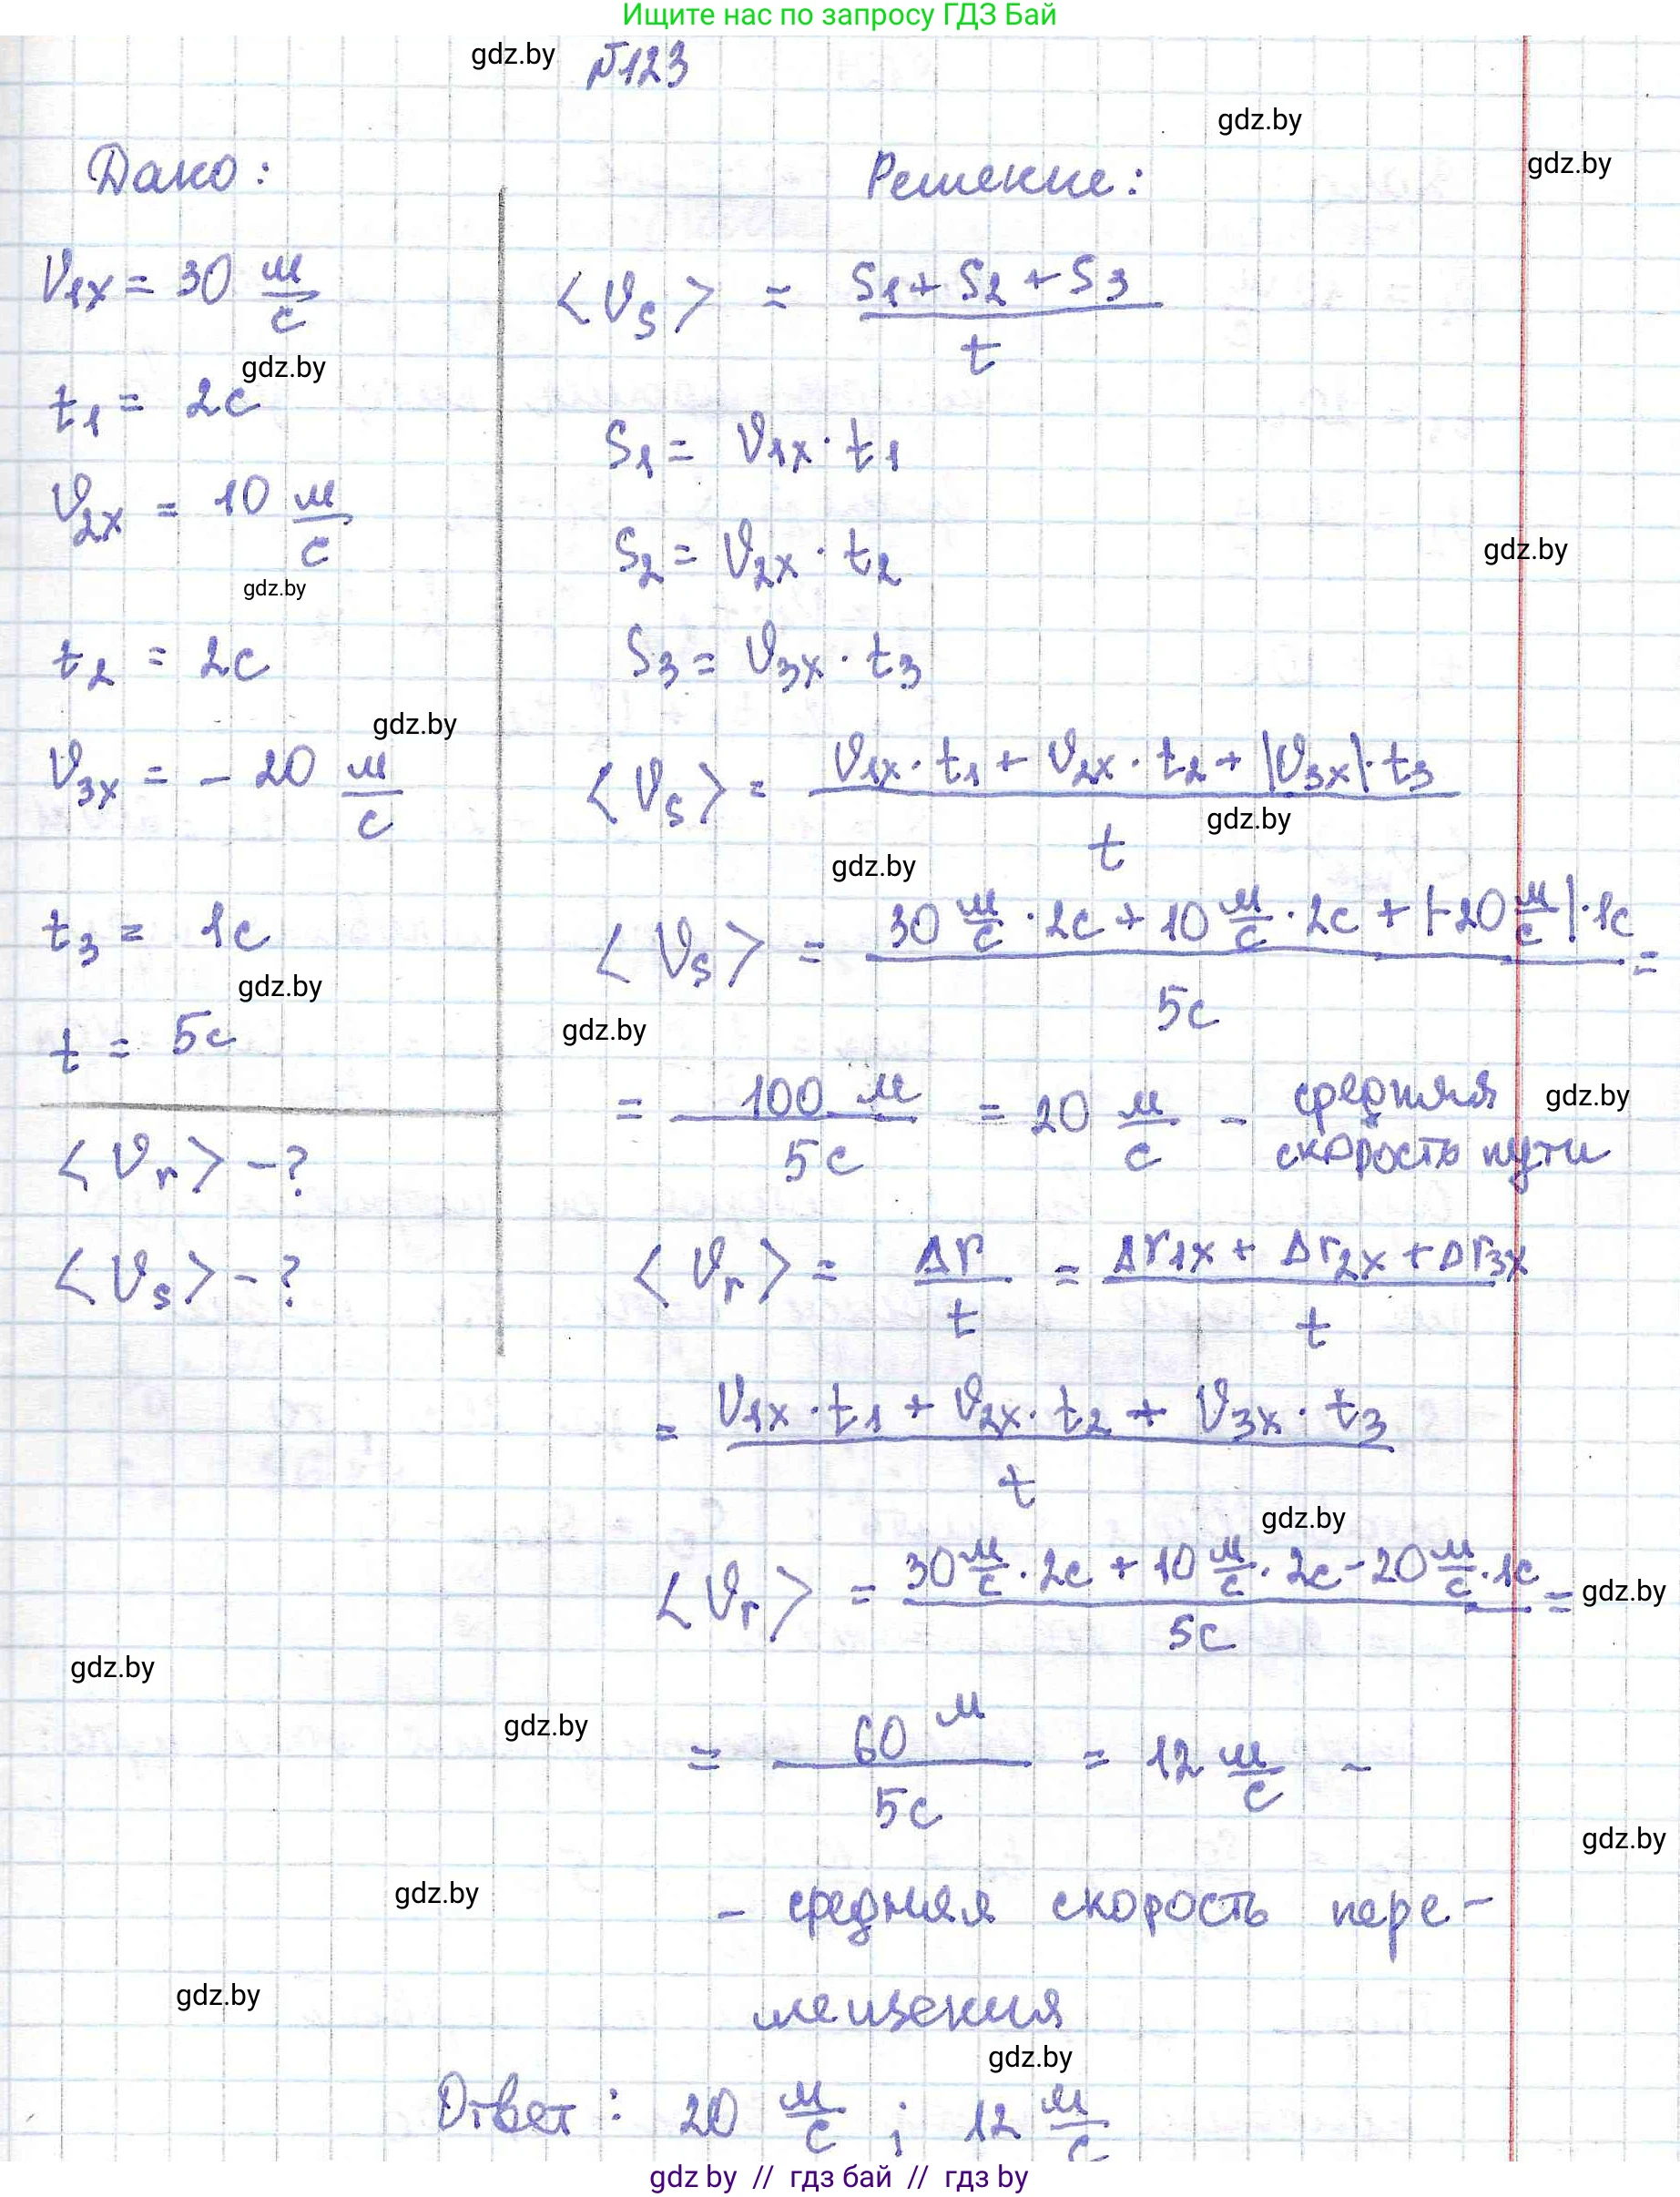 Ищите нас по запросу ГДЗ Бай
gdz.by
№123
gdz.by
gdz.by
Дано:
Решение:
v₁ₓ = 30 м/с
gdz.by
t₁ = 2с
v₂ₓ = 10 м/с
gdz.by
t₂ = 2с
gdz.by
v₃ₓ = - 20 м/с
t₃ = 1с
gdz.by
t = 5с
<vᵣ> - ?
<vₛ> - ?
<vₛ> = (S₁ + S₂ + S₃)/t
S₁ = v₁ₓ · t₁
S₂ = v₂ₓ · t₂
gdz.by
S₃ = v₃ₓ · t₃
<vₛ> = (v₁ₓ · t₁ + v₂ₓ · t₂ + |v₃ₓ| · t₃)/t
gdz.by
gdz.by
<vₛ> = (30 м/с · 2с + 10 м/с · 2с + |-20 м/с| · 1с)/5с =
gdz.by
= 100 м/5с = 20 м/с - средняя
скорость пути
gdz.by
<vᵣ> = Δr/t = (Δr₁ₓ + Δr₂ₓ + Δr₃ₓ)/t
= (v₁ₓ · t₁ + v₂ₓ · t₂ + v₃ₓ · t₃)/t
gdz.by
<vᵣ> = (30 м/с · 2с + 10 м/с · 2с - 20 м/с · 1с)/5с =
gdz.by
gdz.by
gdz.by
= 60 м/5с = 12 м/с -
gdz.by
gdz.by
- средняя скорость пере-
gdz.by
мещения
gdz.by
Ответ: 20 м/с ; 12 м/с
gdz by // гдз бай // гдз by